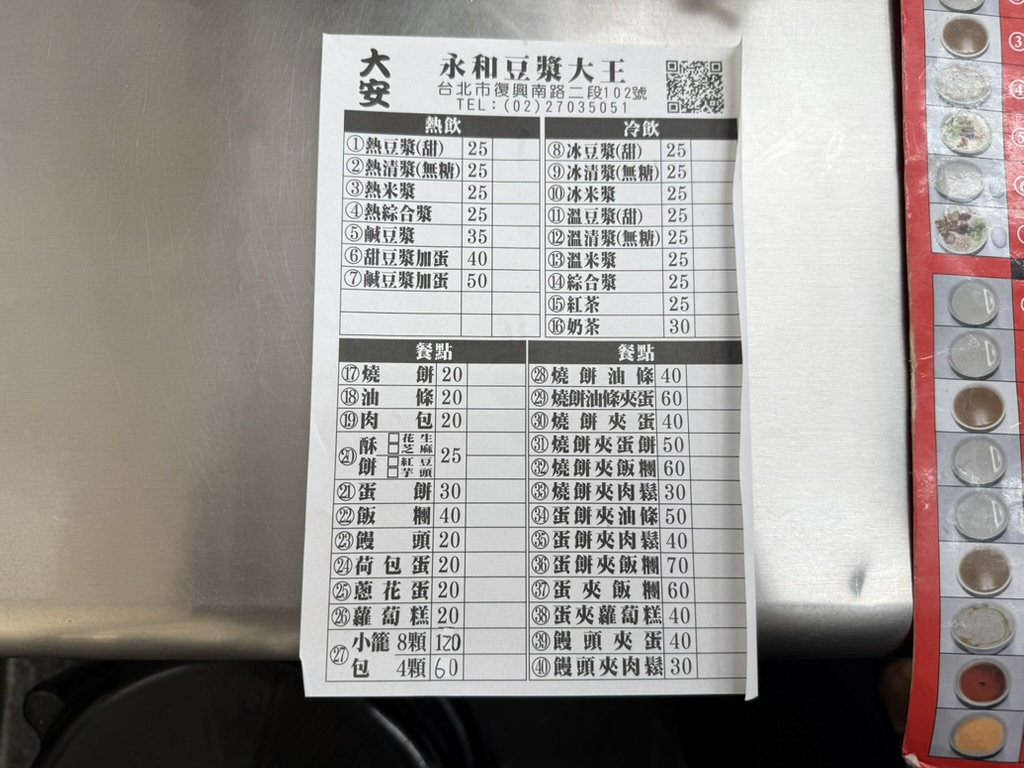 大安
永和豆漿大王
台北市復興南路二段102號
TEL:(02)27035051
熱飲
①熱豆漿(甜) 25
②熱清漿(無糖) 25
③熱米漿 25
④熱綜合漿 25
⑤鹹豆漿 35
⑥甜豆漿加蛋 40
⑦鹹豆漿加蛋 50
冷飲
⑧冰豆漿(甜) 25
⑨冰清漿(無糖) 25
⑩冰米漿 25
⑪溫豆漿(甜) 25
⑫溫清漿(無糖) 25
⑬溫米漿 25
⑭綜合漿 25
⑮紅茶 25
⑯奶茶 30
餐點
⑰燒餅 20
⑱油條 20
⑲肉包 20
⑳酥餅 □花生 □芝麻 □紅豆 □芋頭 25
㉑蛋餅 30
㉒飯糰 40
㉓饅頭 20
㉔荷包蛋 20
㉕蔥花蛋 20
㉖蘿蔔糕 20
㉗小籠包 8顆 120
4顆 60
餐點
㉘燒餅油條 40
㉙燒餅油條夾蛋 60
㉚燒餅夾蛋 40
㉛燒餅夾蛋餅 50
㉜燒餅夾飯糰 60
㉝燒餅夾肉鬆 30
㉞蛋餅夾油條 50
㉟蛋餅夾肉鬆 40
㊱蛋餅夾飯糰 70
㊲蛋夾飯糰 60
㊳蛋夾蘿蔔糕 40
㊴饅頭夾蛋 40
㊵饅頭夾肉鬆 30
③
④